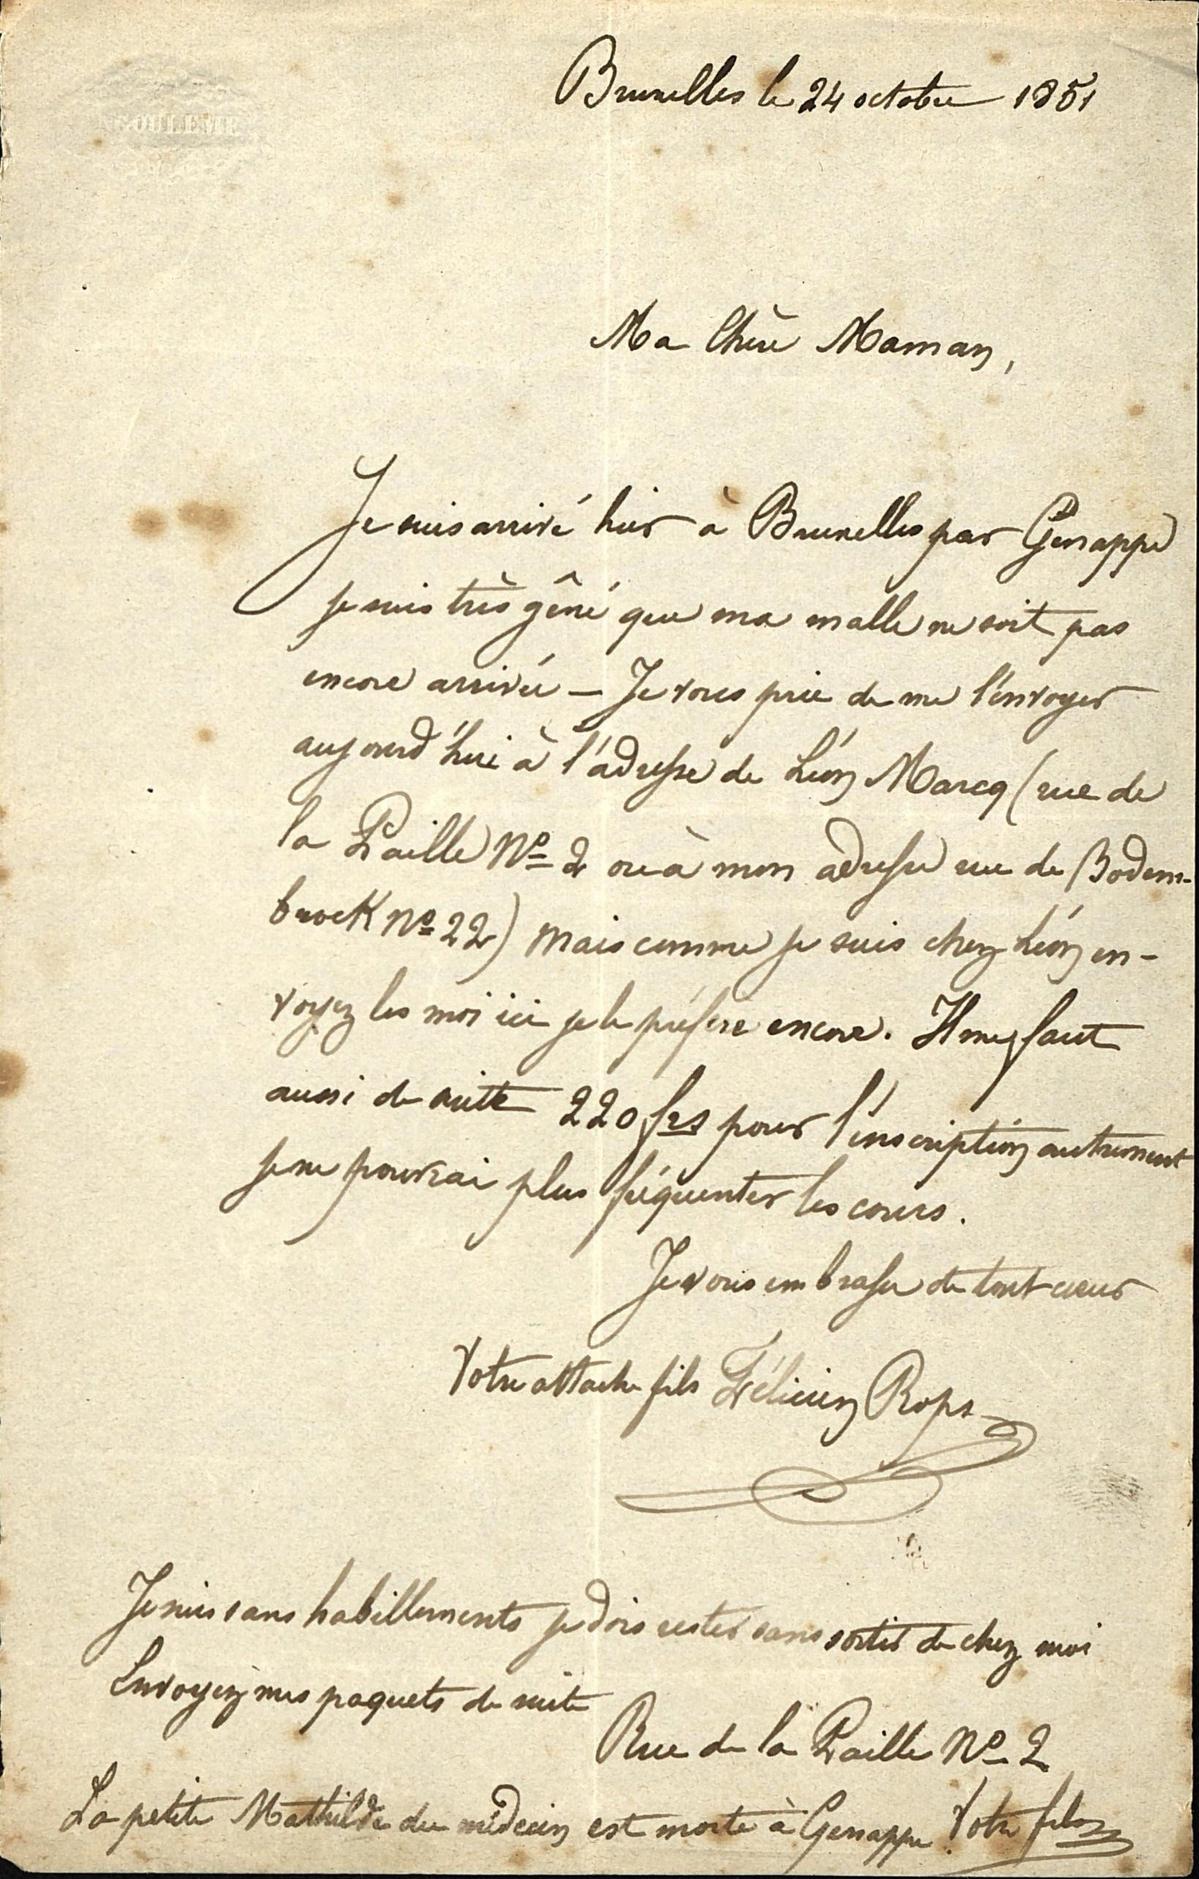 GOULEME
Bruxelles le 24 octobre 1851
Ma Chère Maman,
Je suis arrivé hier à Bruxelles par Genappe
je suis très gêné que ma malle ne soit pas
encore arrivée — Je vous prie de me l'envoyer
aujourd'hui à l'adresse de Léon Marcq (rue de
la Paille Nº 2 ou à mon adresse rue de Bodem-
brock nº 22) mais comme je suis chez Léon en-
voyez les moi ici je le préfère encore. Il me faut
aussi de suite 220 frs pour l'inscription autrement
je ne pourrai plus fréquenter les cours.
Je vous embrasse de tout cœur
Votre attaché fils Félicien Rops
Je suis sans habillements je dois rester sans sortir de chez moi
Envoyez mes paquets de suite
Rue de la Paille Nº 2
La petite Mathilde du médecin est morte à Genappe. Votre fils